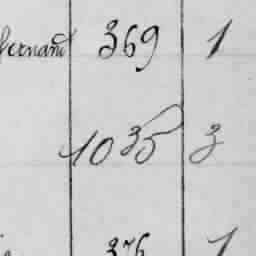 fernand 369 1
1035 3
376 1